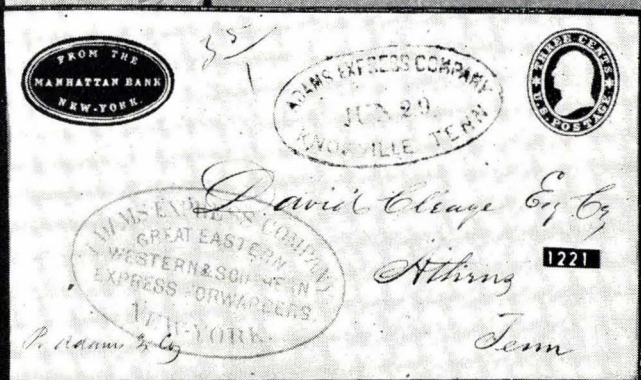 FROM THE
MANHATTAN BANK
NEW-YORK.
ADAMS EXPRESS COMPANY
JUN 29
KNOXVILLE TENN
THREE CENTS
U.S. POSTAGE
David Cleage Esq
1221
Athens
Tenn
ADAMS EXPRESS COMPANY
GREAT EASTERN,
WESTERN & SOUTHERN
EXPRESS FORWARDERS.
NEW-YORK.
P. Adams & Co